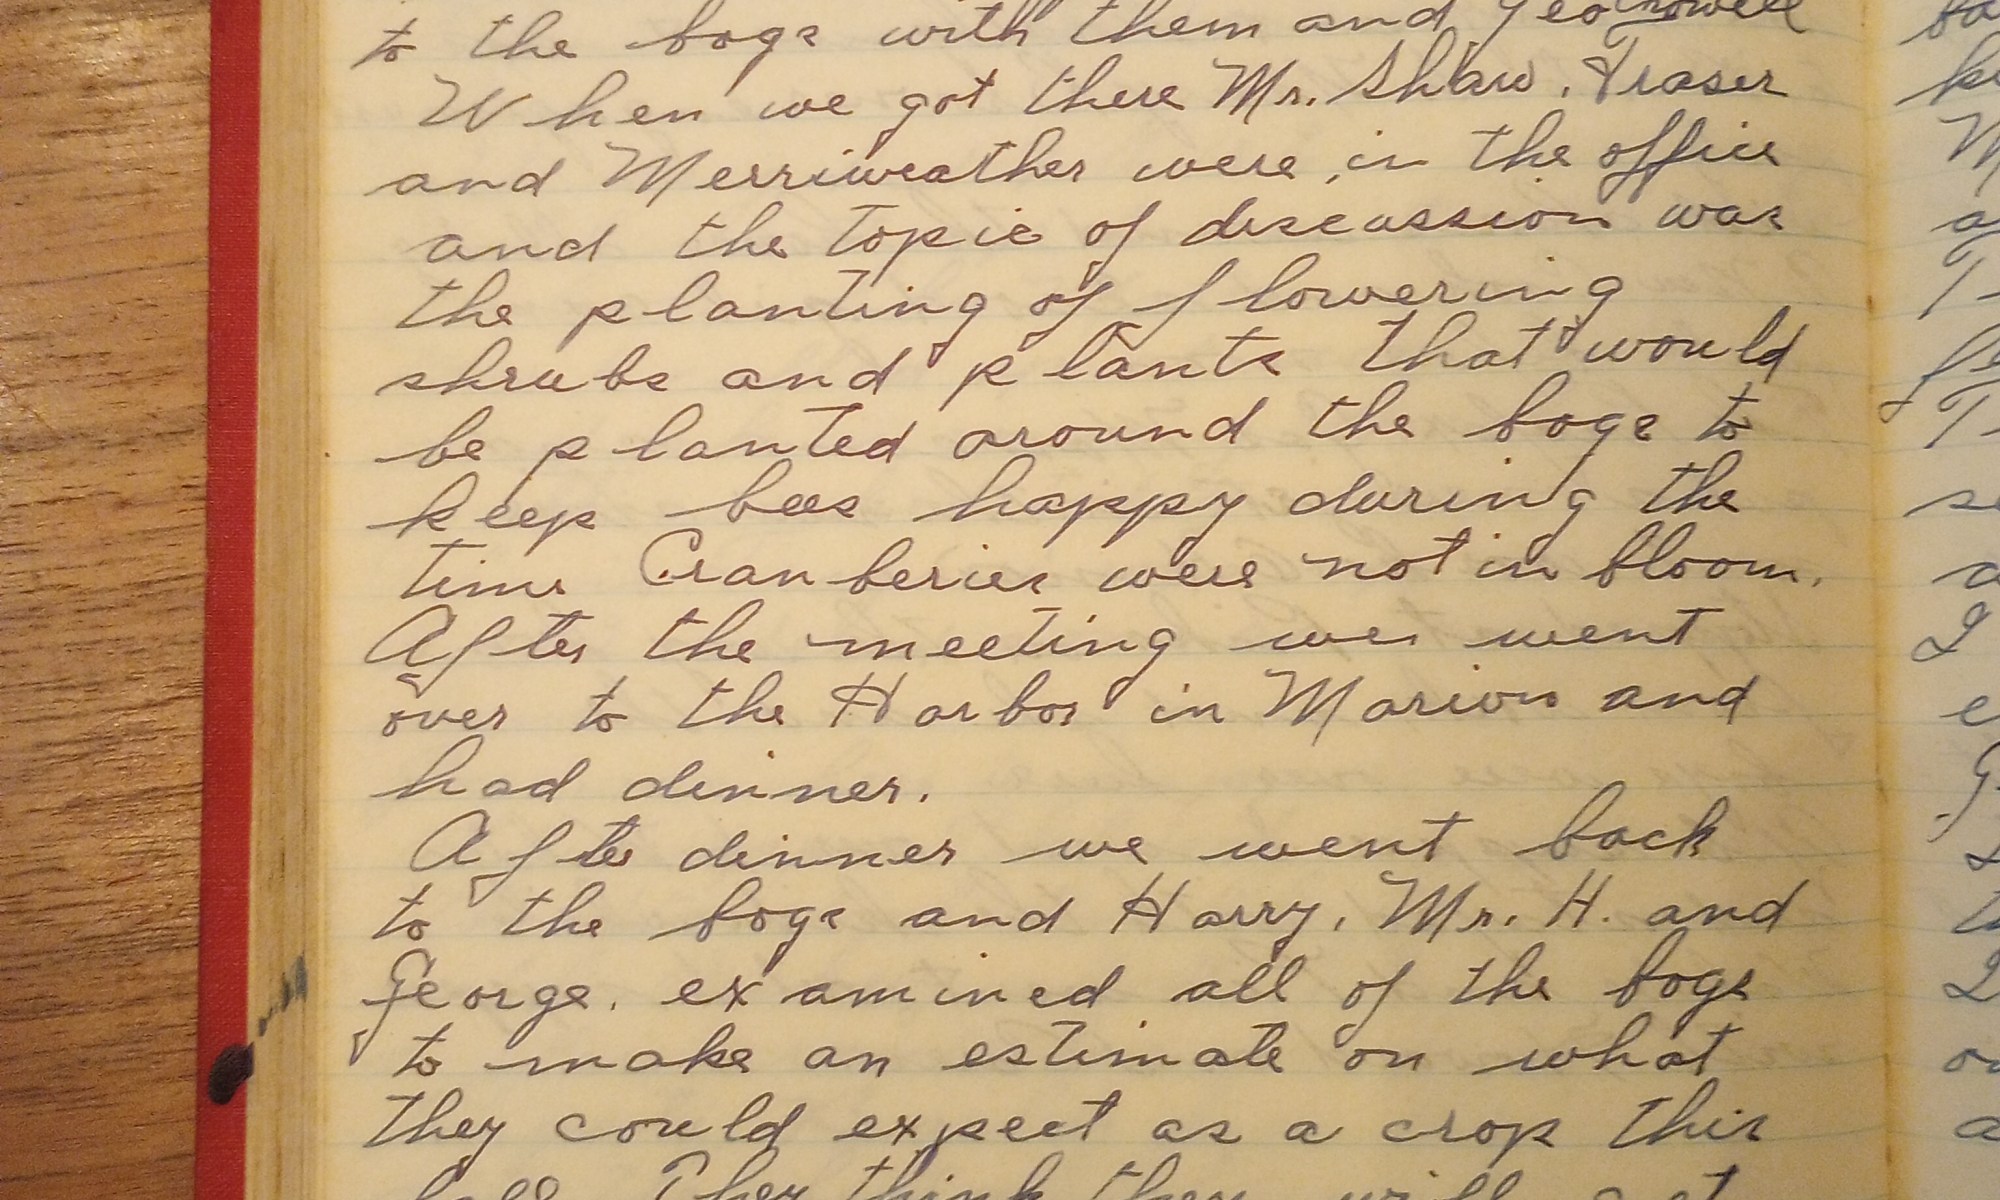 to the bogs with them and Geo
When we got there Mr. Shaw, Fraser
and Merriweather were, in the office
and the topic of discussion was
the planting of flowering
shrubs and plants that would
be planted around the bogs to
keep bees happy during the
time Cranberies were not in bloom.
After the meeting we went
over to the Harbor in Marion and
had dinner.
After dinner we went back
to the bogs and Harry, Mr. H. and
George, examined all of the bogs
to make an estimate on what
they could expect as a crop this
They think they will get